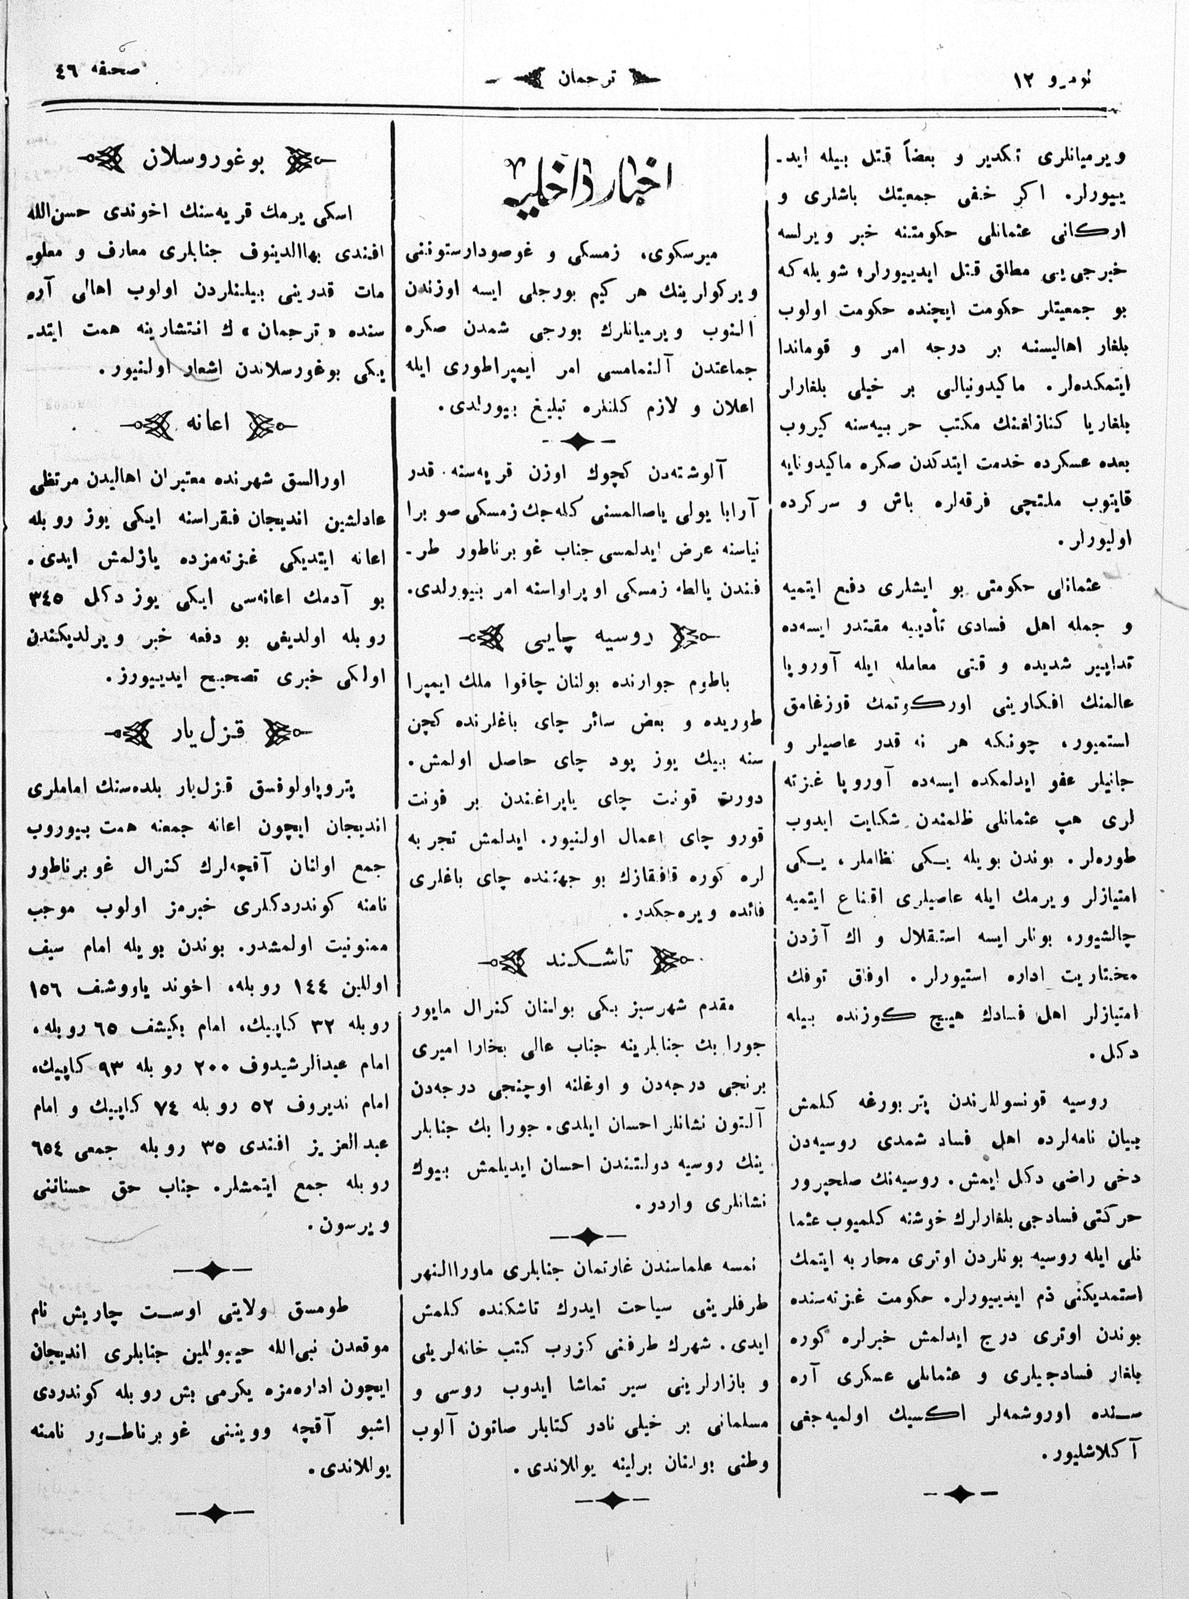 نومرو ١٢
ترجمان
صحفه ٤٦
ويرميانلرى تكدير و بعضاً قتل بيله ايد-
ييورلر. اكر خفى جمعيتك باشلرى و
اركانى عثمانلى حكومتنه خبر ويرلسه
خبرجى‌يى مطلق قتل ايدييورلر؛ شويله كه
بو جمعيتلر حكومت ايچنده حكومت اولوب
بلغار اهاليسنه بر درجه امر و قوماندا
ايتمكده‌لر. ماكيدونيالى بر خيلى بلغارلر
بلغاريا كنازلغنك مكتب حربيه‌سنه كيروب
بعده عسكرده خدمت ايتدكدن صكره ماكيدونايه
قايتوب ملتجى فرقه‌لره باش و سركرده
اوليورلر.
عثمانلى حكومتى بو ايشلرى دفع ايتميه
و جمله اهل فسادى تأديبه مقتدر ايسه‌ده
تدابير شديده و قتى معامله ايله آوروپا
عالمنك افكارينى اوركوتمك قوزغامق
استميور، چونكه هر نه قدر عاصيلر و
جانيلر عفو ايدلمكده ايسه‌ده آوروپا غزته
لرى هپ عثمانلى ظلمندن شكايت ايدوب
طوره‌لر. بوندن بويله يكى نظاملر، يكى
امتيازلر ويرمك ايله عاصيلرى اقناع ايتميه
چالشيور، بونلر ايسه استقلال و اك آزدن
مختاريت اداره استيورلر. اوفاق توفك
امتيازلر اهل فسادك هيچ كوزنده بيله
دكل.
روسيه قونسوللرندن پتربورغه كلمش
بيان نامه‌لرده اهل فساد شمدى روسيه‌دن
دخى راضى دكل ايمش. روسيه‌نك صلحپرور
حركتى فسادجى بلغارلرك خوشنه كلميوب عثما
نلى ايله روسيه بونلردن اوترى محاربه ايتمك
استمديكنى ذم ايدييورلر. حكومت غزته‌سنده
بوندن اوترى درج ايدلمش خبرلره كوره
بلغار فسادجيلرى و عثمانلى عسكرى آره
سنده اوروشمه‌لر اكسيك اولميه‌جغى
آكلاشليور.
اخبار داخليه
ميرسكوى، زمسكى و غوصودارستوننى
ويركولرينك هر كيم بورجلى ايسه اوزندن
آلنوب ويرميانلرك بورجى شمدن صكره
جماعتدن آلنمامسى امر ايمپراطورى ايله
اعلان و لازم كلنلره تبليغ بيورلدى.
آلوشته‌دن كچوك اوزن قريه‌سنه قدر
آرابا يولى ياصالمسنى كله‌جك زمسكى صوبرا
نياسنه عرض ايدلمسى جناب غوبرناطور طر-
فندن يالطه زمسكى اوپراواسنه امر بيورلدى.
روسيه چايى
باطوم جوارنده بولنان چاقوا ملك ايمپرا
طوريده و بعض سائر چاى باغلرنده كچن
سنه بيك يوز پود چاى حاصل اولمش.
دورت قونت چاى ياپراغندن بر فونت
قورو چاى اعمال اولنيور. ايدلمش تجربه
لره كوره قافقازك بو جهتنده چاى باغلرى
فائده ويره‌جكدر.
تاشكند
مقدم شهرسبز بكى بولنان كنرال مايور
جورا بك جنابلرينه جناب عالى بخارا اميرى
برنجى درجه‌دن و اوغلنه اوچنجى درجه‌دن
آلتون نشانلر احسان ايلدى. جورا بك جنابلر
ينك روسيه دولتندن احسان ايديلمش بيوك
نشانلرى واردو.
نمسه علماسندن غارتمان جنابلرى ماوراالنهر
طرفلرينى سياحت ايدرك تاشكنده كلمش
ايدى. شهرك طرفنى كزوب كتب خانه‌لرينى
و بازارلرينى سير تماشا ايدوب روسى و
مسلمانى بر خيلى نادر كتابلر صاتون آلوب
وطنى بولنان برلينه يوللاندى.
بوغوروسلان
اسكى يرمك قريه‌سنك اخوندى حسن‌الله
افندى بهاالدينوف جنابلرى معارف و معلو-
مات قدرينى بيلنلردن اولوب اهالى آره
سنده «ترجمان» ك انتشارينه همت ايتد-
يكى بوغورسلاندن اشعار اولنيور.
اعانه
اورالسق شهرنده معتبران اهاليدن مرتظى
عادلشين انديجان فقراسنه ايكى يوز روبله
اعانه ايتديكى غزته‌مزده يازلمش ايدى.
بو آدمك اعانه‌سى ايكى يوز دكل ٣٤٥
روبله اولديغى بو دفعه خبر ويرلديكندن
اولكى خبرى تصحيح ايدييورز.
قزل‌يار
پتروپاولوفسق قزل‌يار بلده‌سنك اماملرى
انديجان ايچون اعانه جمعنه همت بيوروب
جمع اولنان آقچه‌لرك كنرال غوبرناطور
نامنه كوندردكلرى خبرمز اولوب موجب
ممنونيت اولمشدر. بوندن بويله امام سيف
اوللين ١٤٤ روبله، اخوند ياروشف ١٥٦
روبله ٣٢ كاپيك، امام بكيشف ٦٥ روبله،
امام عبدالرشيدوف ٢٠٠ روبله ٩٣ كاپيك،
امام نديروف ٥٢ روبله ٧٤ كاپيك و امام
عبدالعزيز افندى ٣٥ روبله جمعى ٦٥٤
روبله جمع ايتمشلر. جناب حق حسناتنى
ويرسون.
طومسق ولايتى اوست چاريش نام
موقعدن نبى‌الله حيبوللين جنابلرى انديجان
ايچون اداره‌مزه يكرمى بش روبله كوندردى
اشبو آقچه وويننى غوبرناطور نامنه
يوللاندى.